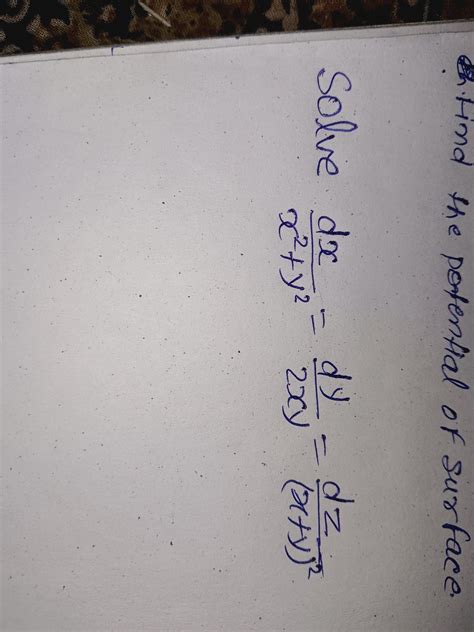 Find the potential of surface.
Solve dx/(x²+y²) = dy/(2xy) = dz/(x+y)²